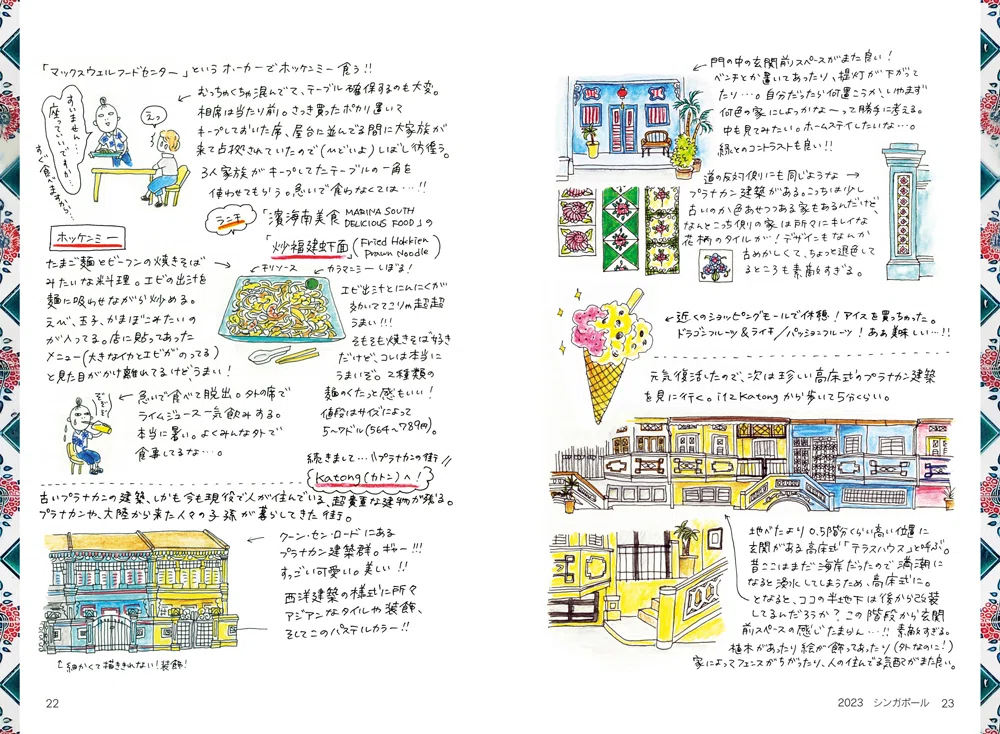 「マックスウェルフードセンター」というホーカーでホッケンミー食う!!
すいません…
座っていいですか…
すぐ食べますから…
えっ
むっちゃくちゃ混んでて、テーブル確保するのも大変。
相席は当たり前。さっき買ったポカリ置いて
キープしておいた席、屋台に並んでる間に大家族が
来て占拠されていたので(ひどいよ)しばし彷徨う。
3人家族がキープしてたテーブルの一角を
使わせてもらう。急いで食わなくては…!!
ランチ
「濱海南美食 MARINA SOUTH DELICIOUS FOOD」の
「炒福建虾面」(Fried Hokkien Prawn Noodle)
ホッケンミー
たまご麺とビーフンの焼きそば
みたいな料理。エビの出汁を
麺に吸わせながら炒める。
えび、玉子、かまぼこみたいの
が入ってる。店に貼ってあった
メニュー(大きなイカとエビがのってる)
と見た目がかけ離れてるけど、うまい!
チリソース
カラマンシーしぼる!
エビ出汁とにんにくが
効いててこりゃ超超
うまい!!!
そもそも焼きそば好き
だけど、コレは本当に
うまいぞ。2種類の
麺のくたっと感もいい!
値段はサイズによって
5〜7ドル(564〜789円)。
急いで食べて脱出。外の席で
ライムジュース一気飲みする。
本当に暑い。よくみんな外で
食事してるな…。
続きまして…プラナカンの街
Katong(カトン)へ!
古いプラナカンの建築、しかも今も現役で人が住んでいる、超貴重な建物が残る。
プラナカンや、大陸から来た人々の子孫が暮らしてきた街。
クーン・セン・ロードにある
プラナカン建築群。ギャー!!!
すっごい可愛い。美しい!!
西洋建築の様式に所々
アジアンなタイルや装飾、
そしてこのパステルカラー!!
細かくて描ききれない!装飾!
22
門の中の玄関前スペースがまた良い!
ベンチとか置いてあったり、提灯が下がって
たり…。自分だったら何置こうか、いやまず
何色の家にしよっかな〜って勝手に考える。
中も見てみたい。ホームステイしたいな…。
緑とのコントラストも良い!!
道の反対側にも同じような
プラナカン建築がある。こっちは少し
古いのか色あせつつある家もあるんだけど、
なんとこっち側の家は所々にキレイな
花柄のタイルが!デザインもなんか
古めかしくて、ちょっと退色して
るところも素敵すぎる。
近くのショッピングモールで休憩!アイスを買っちゃった。
ドラゴンフルーツ&ライチ/パッションフルーツ!ああ美味しい…!!
元気復活したので、次は珍しい高床式のプラナカン建築
を見に行く。i12 Katongから歩いて5分くらい。
地がたより0.5階分くらい高い位置に
玄関がある高床式「テラスハウス」と呼ぶ。
昔ここはまだ海岸だったので満潮に
なると浸水してしまうため、高床式に。
となると、ココの半地下は後から改装
してるんだろうか?この階段から玄関
前スペースの感じたまらん…!!素敵すぎる。
植木があったり絵が飾ってあったり(外なのに!)
家によってフェンスがちがったり、人の住んでる気配がまた良い。
2023 シンガポール 23